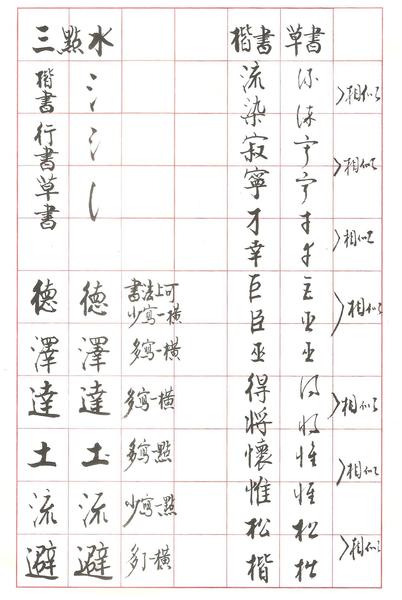 三點水
楷書
行書
草書
德 德 書法上可少寫一橫
澤 澤 多寫一橫
達 達 多寫一橫
土 圡 多寫點
流 流 少寫一點
避 避 多打橫
楷書 草書
流 流
染 染
相似
寂 寂
寧 寧
相似
才 才
幸 幸
相似
巨 巨
臣 臣
巫 巫
相似
得 得
將 將
相似
懷 懷
惟 惟
相似
松 松
楷 楷
相似